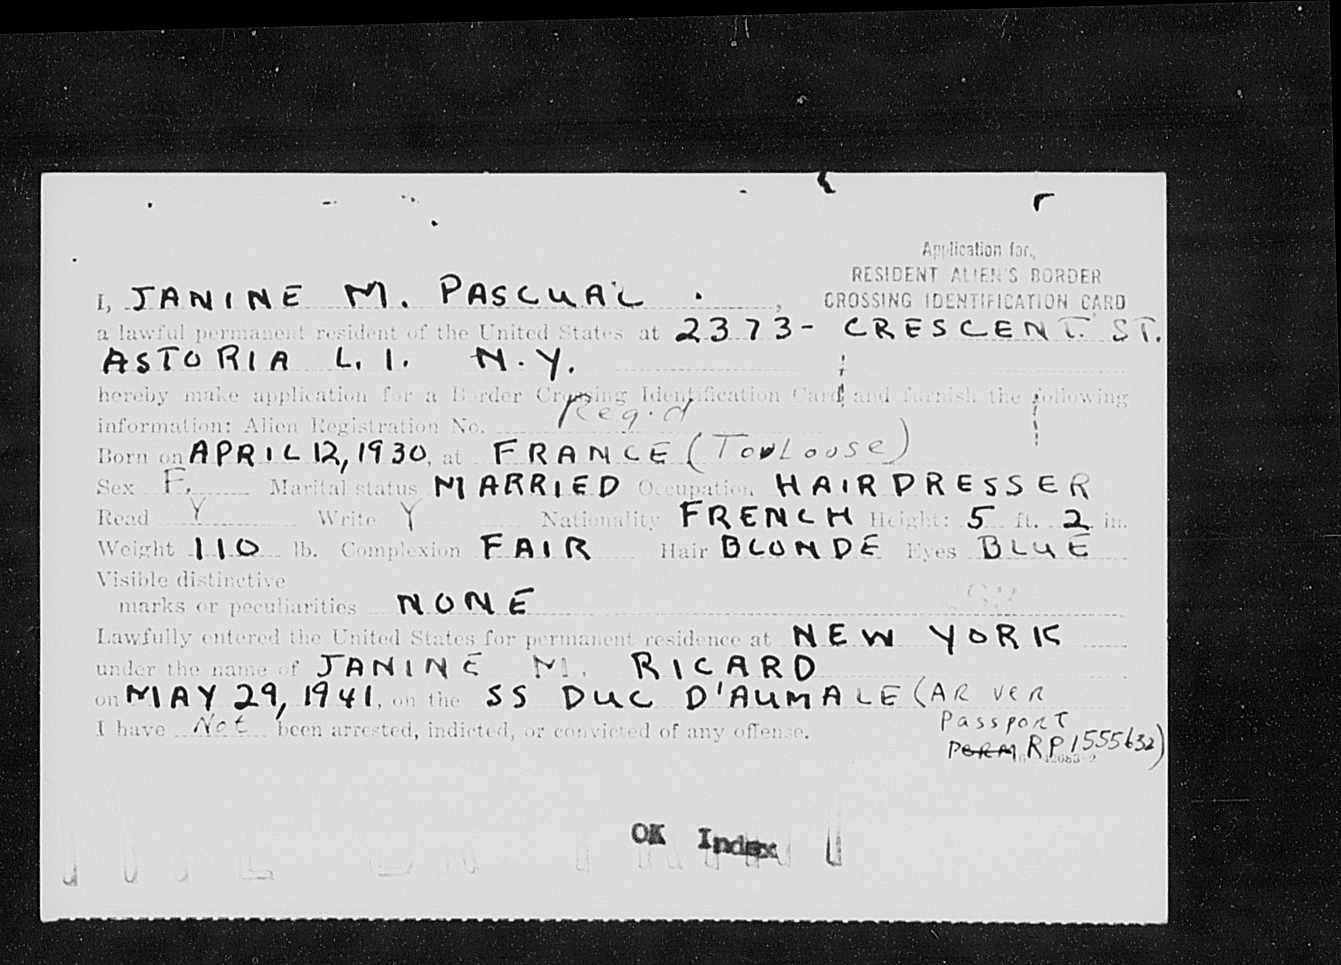 Application for
RESIDENT ALIEN'S BORDER
CROSSING IDENTIFICATION CARD
I, JANINE M. PASCUAL,
a lawful permanent resident of the United States at 2373- CRESCENT ST.
ASTORIA L. I. N.Y.
hereby make application for a Border Crossing Identification Card and furnish the following
information: Alien Registration No. Req'd
Born on APRIL 12, 1930, at FRANCE (Toulouse)
Sex F. Marital status MARRIED Occupation HAIRDRESSER
Read Y Write Y Nationality FRENCH Height: 5 ft. 2 in.
Weight 110 lb. Complexion FAIR Hair BLONDE Eyes BLUE
Visible distinctive
marks or peculiarities NONE
Lawfully entered the United States for permanent residence at NEW YORK
under the name of JANINE M. RICARD
on MAY 29, 1941, on the SS DUC D'AUMALE (AR VER
I have Not been arrested, indicted, or convicted of any offense.
Passport
PERM RP 1555632)
OK Index